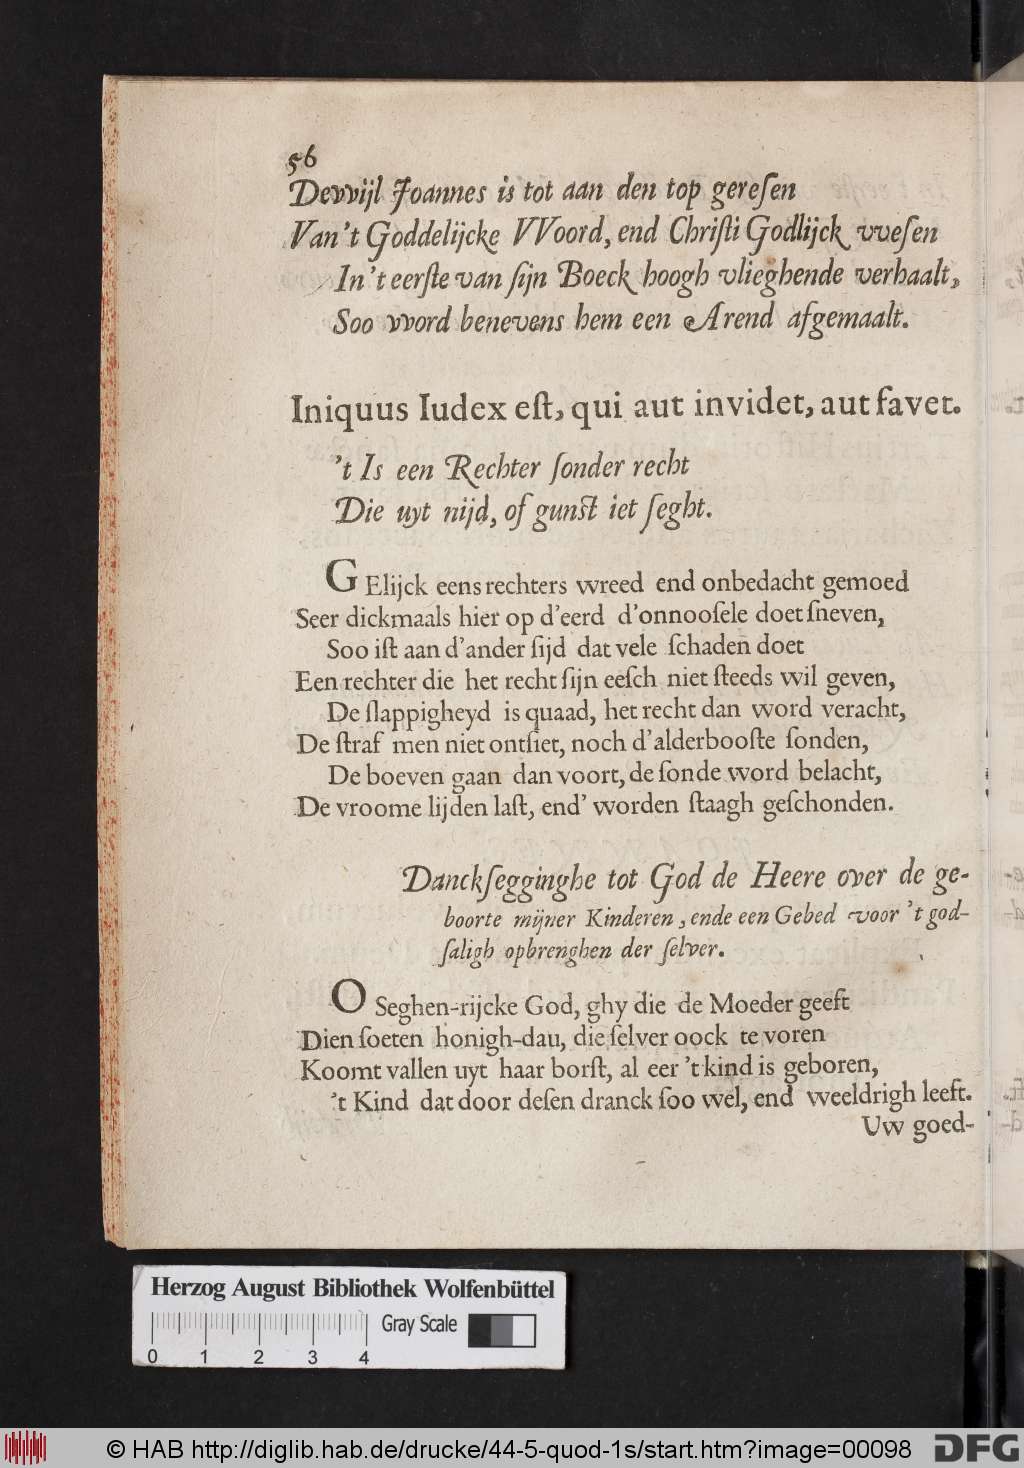 56
Devvijl Joannes is tot aan den top geresen
Van't Goddelijcke VVoord, end Christi Godlijck vvesen
In't eerste van sijn Boeck hoogh vlieghende verhaalt,
Soo vvord benevens hem een Arend afgemaalt.
Iniquus Iudex est, qui aut invidet, aut favet.
't Is een Rechter sonder recht
Die uyt nijd, of gunst iet seght.
GElijck eens rechters wreed end onbedacht gemoed
Seer dickmaals hier op d'eerd d'onnoosele doet sneven,
Soo ist aan d'ander sijd dat vele schaden doet
Een rechter die het recht sijn eesch niet steeds wil geven,
De slappigheyd is quaad, het recht dan word veracht,
De straf men niet ontsiet, noch d'alderbooste sonden,
De boeven gaan dan voort, de sonde word belacht,
De vroome lijden last, end' worden staagh geschonden.
Danckseggìnghe tot God de Heere over de ge-
boorte mijner Kinderen, ende een Gebed voor 't god-
saligh opbrenghen der selver.
O Seghen-rijcke God, ghy die de Moeder geeft
Dien soeten honigh-dau, die selver oock te voren
Koomt vallen uyt haar borst, al eer 't kind is geboren,
't Kind dat door desen dranck soo wel, end weeldrigh leeft.
Uw goed-
Herzog August Bibliothek Wolfenbüttel
Gray Scale
0 1 2 3 4
© HAB http://diglib.hab.de/drucke/44-5-quod-1s/start.htm?image=00098
DFG